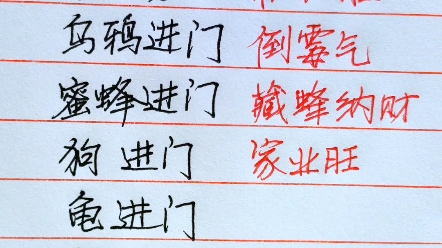 乌鸦进门 倒霉气
蜜蜂进门 藏蜂纳财
狗 进门 家业旺
龟进门